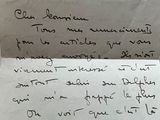 Cher Monsieur
Tous mes remerciements
pour les articles que vous
m'avez envoyés
vivement intéressé et c'est
surtout celui sur Delphes
qui m'a frappé le plus
On voit que c'est là